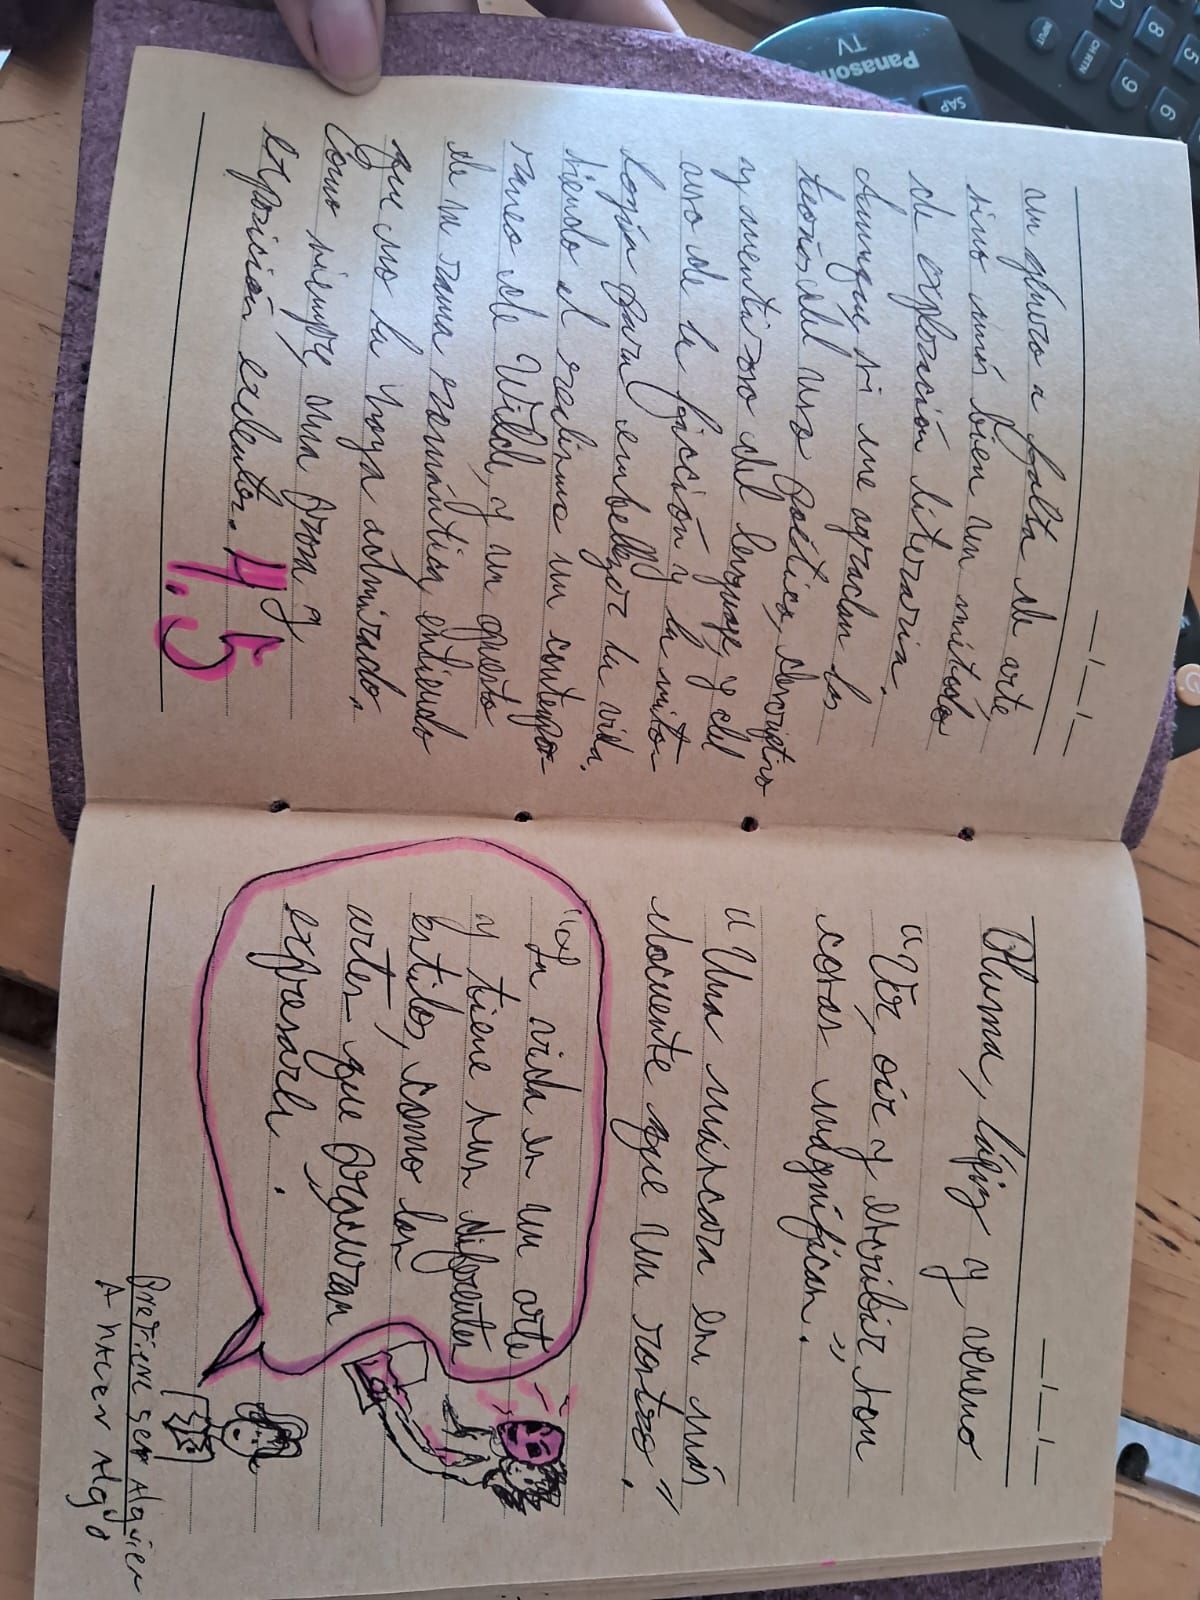 un género a falta de arte,
sino más bien un método
de exploración literaria.
Aunque si me agradan las
teorías del uso poético, descriptivo
y mentiroso del lenguaje, y del
uso de la ficción y la mito-
logía para embellezer la vida.
Siendo el realismo un contempo-
raneo de Wilde, y un opuesto
de su rama romántica, entiendo
que no la haya admirado.
Como siempre, una prosa y
exposición exelentes.
4.5
Pluma, lápiz y veneno
"Ver, oír y escribir son
cosas magníficas."
"Una máscara es más
elocuente que un rostro".
"La vida es un arte
y tiene sus diferentes
estilos, como las
artes que procuran
expresarla.
Prefiere ser alguien
A hacer algo
Panasonic
TV
SAP
INPUT
CH RTN
0
8
5
9
6